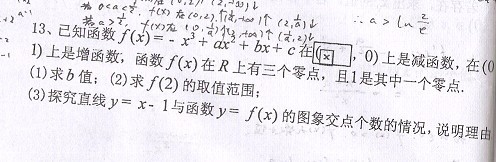 ∴ a > ln
13、已知函数 f(x) = - x³ + ax² + bx + c 在( x , 0) 上是减函数，在(0
1) 上是增函数，函数 f(x) 在 R 上有三个零点，且1是其中一个零点.
(1)求 b 值；(2)求 f(2) 的取值范围；
(3)探究直线 y = x - 1 与函数 y = f(x) 的图象交点个数的情况，说明理由